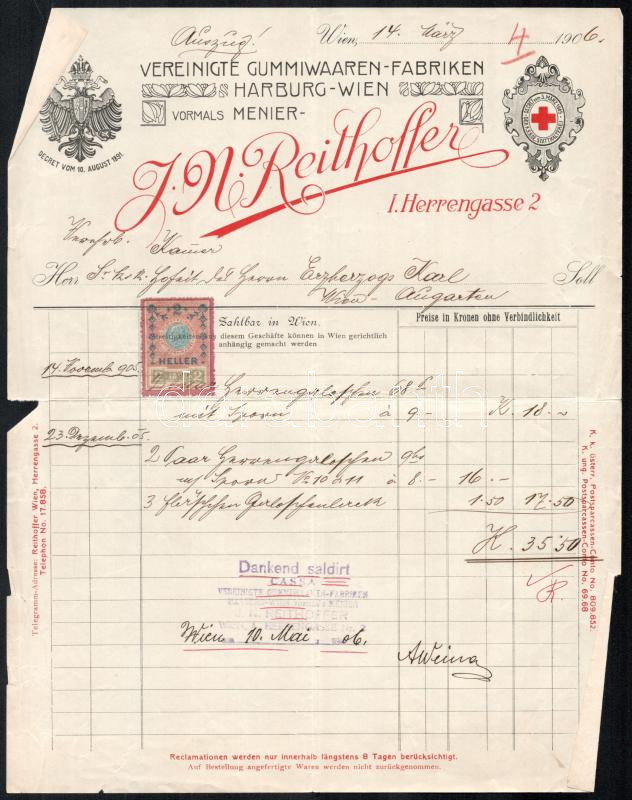 Auszug!
Wien, 14 März 1906.
4
VEREINIGTE GUMMIWAAREN-FABRIKEN
HARBURG-WIEN
VORMALS MENIER-
J. N. Reithoffer
I. Herrengasse 2
DECRET VOM 10. AUGUST 1891.
Kamer
Herr Sr. k. u. k. Hoheit des Herrn Erzherzogs Karl Soll
Wien-Augarten
Zahlbar in Wien.
diesem Geschäfte können in Wien gerichtlich
anhängig gemacht werden
Preise in Kronen ohne Verbindlichkeit
2
HELLER
14. Novemb. 905.
Herrengaloschen 68
mit Sporn à 9- K. 18.-
23. Dezemb. 05.
2 Paar Herrengaloschen
m/ Sporn No 10 à 8.- 16.-
3 Galoschenlack 1.50 17.50
K. 35.50
Dankend saldirt
CASSA
VEREINIGTE GUMMIWAAREN-FABRIKEN
HARBURG-WIEN VORMALS MENIER
J. N. REITHOFFER
WIEN, I. HERRENGASSE Nr. 2
Wien 10. Mai 1906.
Telegramm-Adresse: Reithoffer Wien, Herrengasse 2.
Telephon No. 17.858.
K. k. österr. Postsparcassen-Conto No. 809.852.
K. ung. Postsparcassen-Conto No. 69.68
Reclamationen werden nur innerhalb längstens 8 Tagen berücksichtigt.
Auf Bestellung angefertigte Waren werden nicht zurückgenommen.